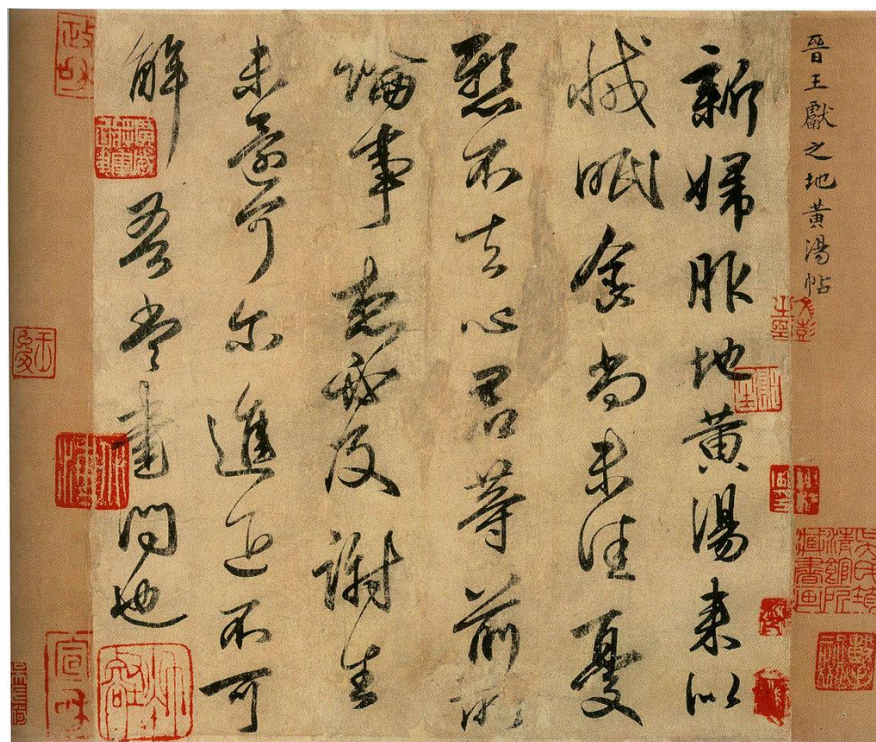 晉王獻之地黄湯帖
新婦服地黄湯来似
減眠食尚未佳憂
懸不去心君等前所
論事想必及謝生
未還可尔進退不可
解吾當書問也
政和
宣和